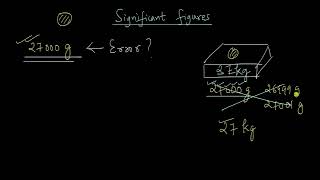 Significant figures
27000 g ← Error?
27kg
27000 g 26999 g
27001 g
27 kg